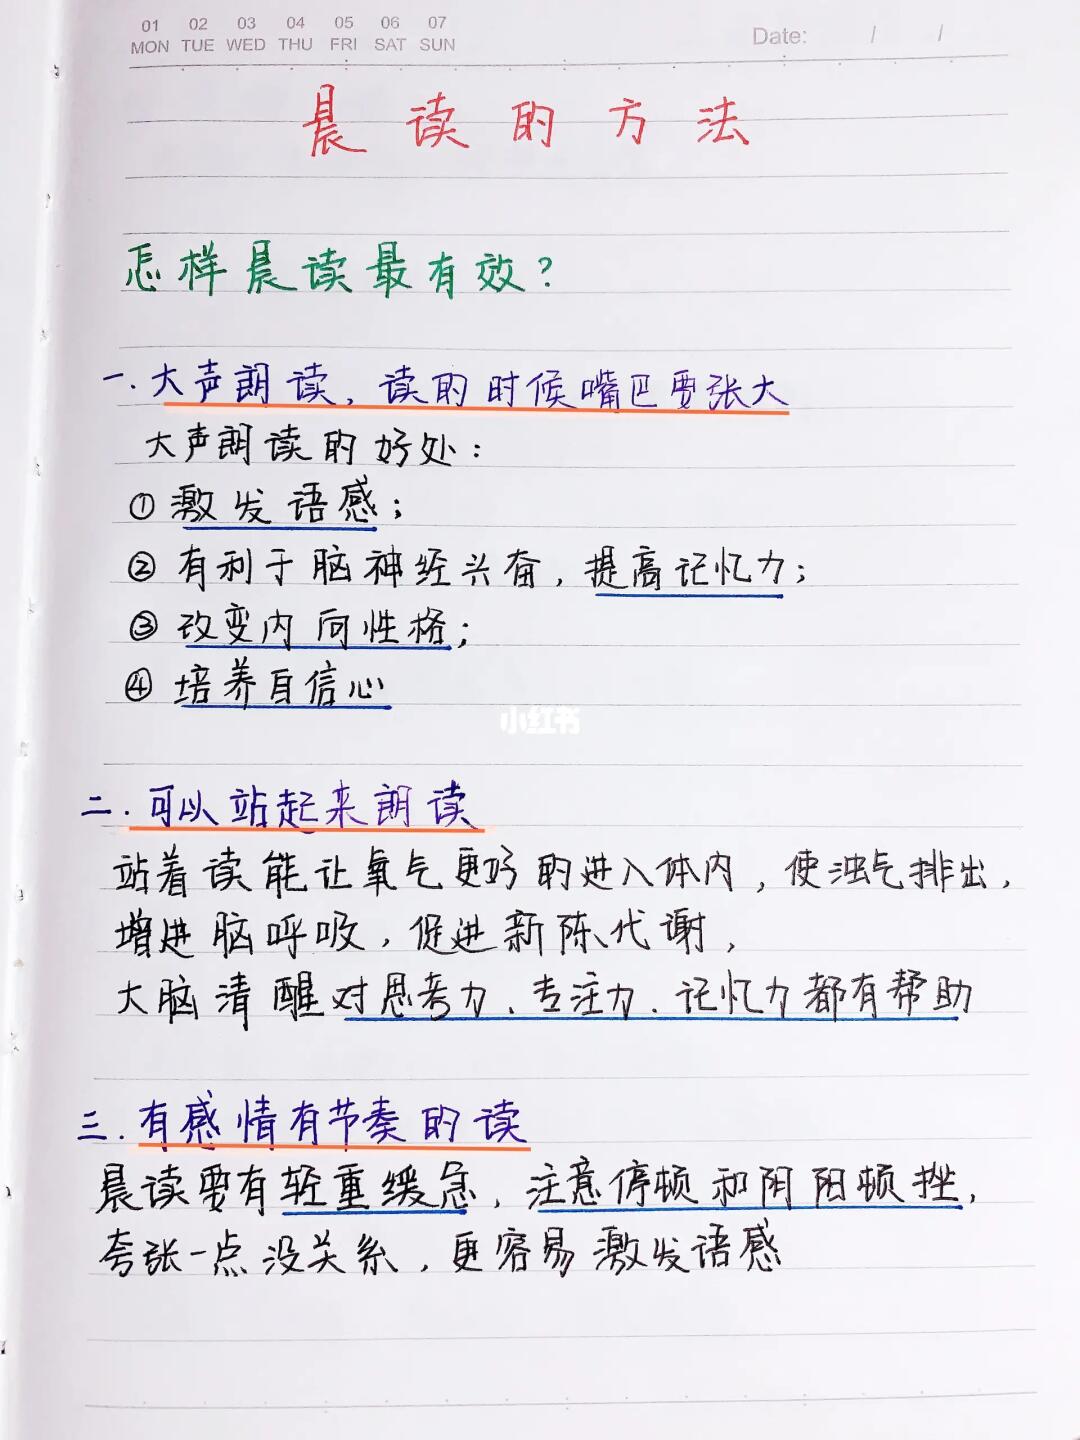 01 02 03 04 05 06 07
MON TUE WED THU FRI SAT SUN
Date: / /
晨读的方法
怎样晨读最有效?
一.大声朗读,读的时候嘴巴要张大
大声朗读的好处:
①激发语感;
②有利于脑神经兴奋,提高记忆力;
③改变内向性格;
④培养自信心
小红书
二.可以站起来朗读
站着读能让氧气更好的进入体内,使浊气排出,
增进脑呼吸,促进新陈代谢,
大脑清醒对思考力、专注力、记忆力都有帮助
三.有感情有节奏的读
晨读要有轻重缓急,注意停顿和阴阳顿挫,
夸张一点没关系,更容易激发语感